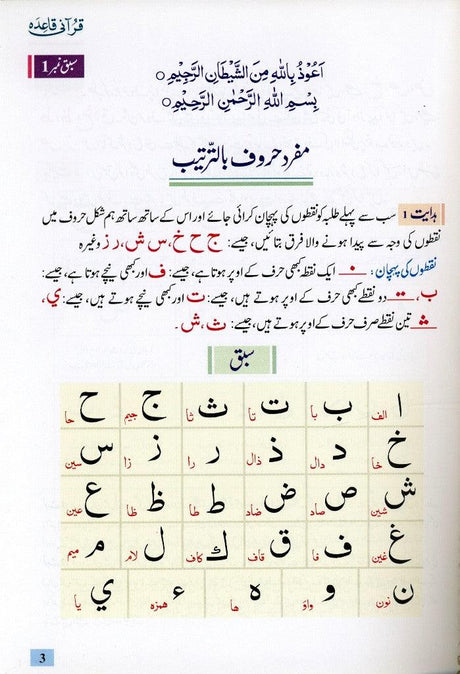 قرآنی قاعدہ
سبق نمبر 1
اَعُوْذُ بِاللّٰهِ مِنَ الشَّيْطَانِ الرَّجِيْمِ ○
بِسْمِ اللّٰهِ الرَّحْمٰنِ الرَّحِيْمِ ○
مفرد حروف بالتّرتیب
ہدایت 1 سب سے پہلے طلبہ کو نقطوں کی پہچان کرائی جائے اور اس کے ساتھ ساتھ ہم شکل حروف میں
نقطوں کی وجہ سے پیدا ہونے والا فرق بتائیں، جیسے: ج ح خ، س ش، ر ز وغیرہ
نقطوں کی پہچان: ۔ ایک نقطہ کبھی حرف کے اوپر ہوتا ہے، جیسے: ف اور کبھی نیچے ہوتا ہے، جیسے:
ب، دو نقطے کبھی حرف کے اوپر ہوتے ہیں، جیسے: ت اور کبھی نیچے ہوتے ہیں، جیسے: ي،
تین نقطے صرف حرف کے اوپر ہوتے ہیں، جیسے: ث، ش ۔
سبق
ا الف ب با ت تا ث ثا ج جیم ح حا
خ خا د دال ذ ذال ر را ز زا س سین
ش شین ص صاد ض ضاد ط طا ظ ظا ع عین
غ غین ف فا ق قاف ك کاف ل لام م میم
ن نون و واوَ ه ها ء همزه ي یا
3